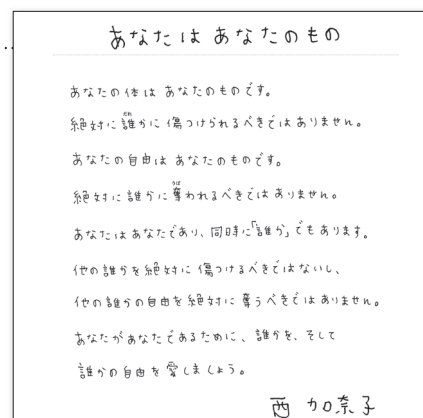 あなたは あなたのもの
あなたの体は あなたのものです。
絶対に誰かに 傷つけられるべきではありません。
あなたの自由は あなたのものです。
絶対に誰かに奪われるべきではありません。
あなたはあなたであり、同時に「誰か」でもあります。
他の誰かを絶対に 傷つけるべきではないし、
他の誰かの自由を絶対に 奪うべきではありません。
あなたがあなたであるために、誰かを、そして
誰かの自由を愛しましょう。
西 加奈子